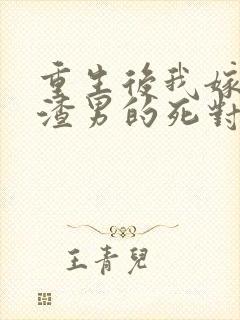 重生後我嫁
渣男的死對
王青兒